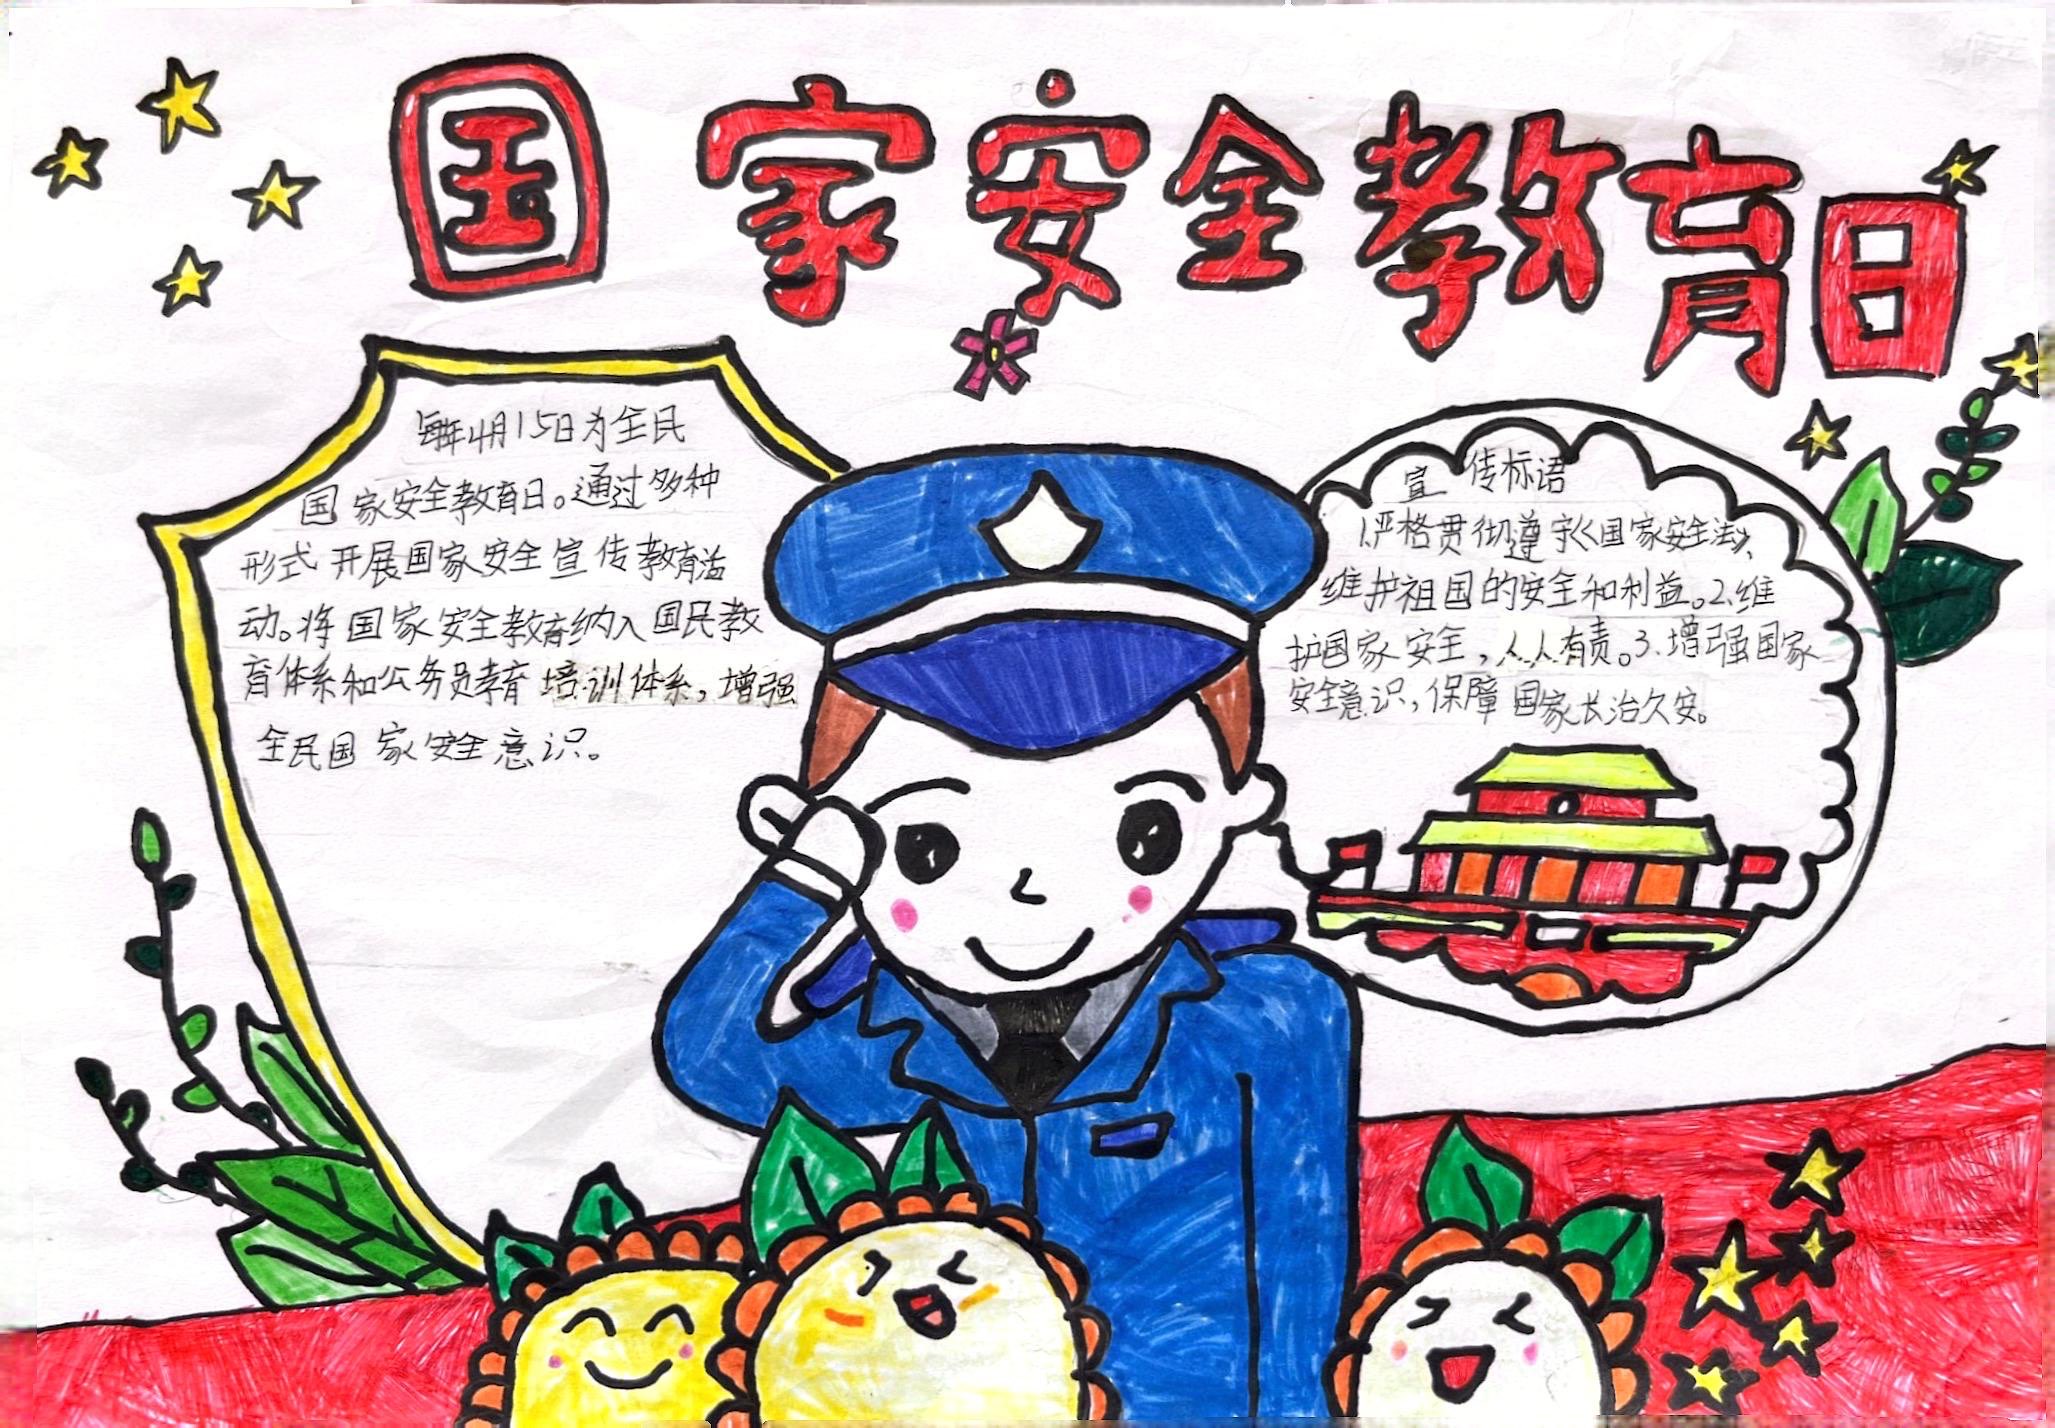 国家安全教育日
每年4月15日为全民
国家安全教育日。通过多种
形式开展国家安全宣传教育活
动。将国家安全教育纳入国民教
育体系和公务员教育培训体系，增强
全民国家安全意识。
宣传标语
1.严格贯彻遵守《国家安全法》，
维护祖国的安全和利益。2.维
护国家安全，人人有责。3.增强国家
安全意识，保障国家长治久安。